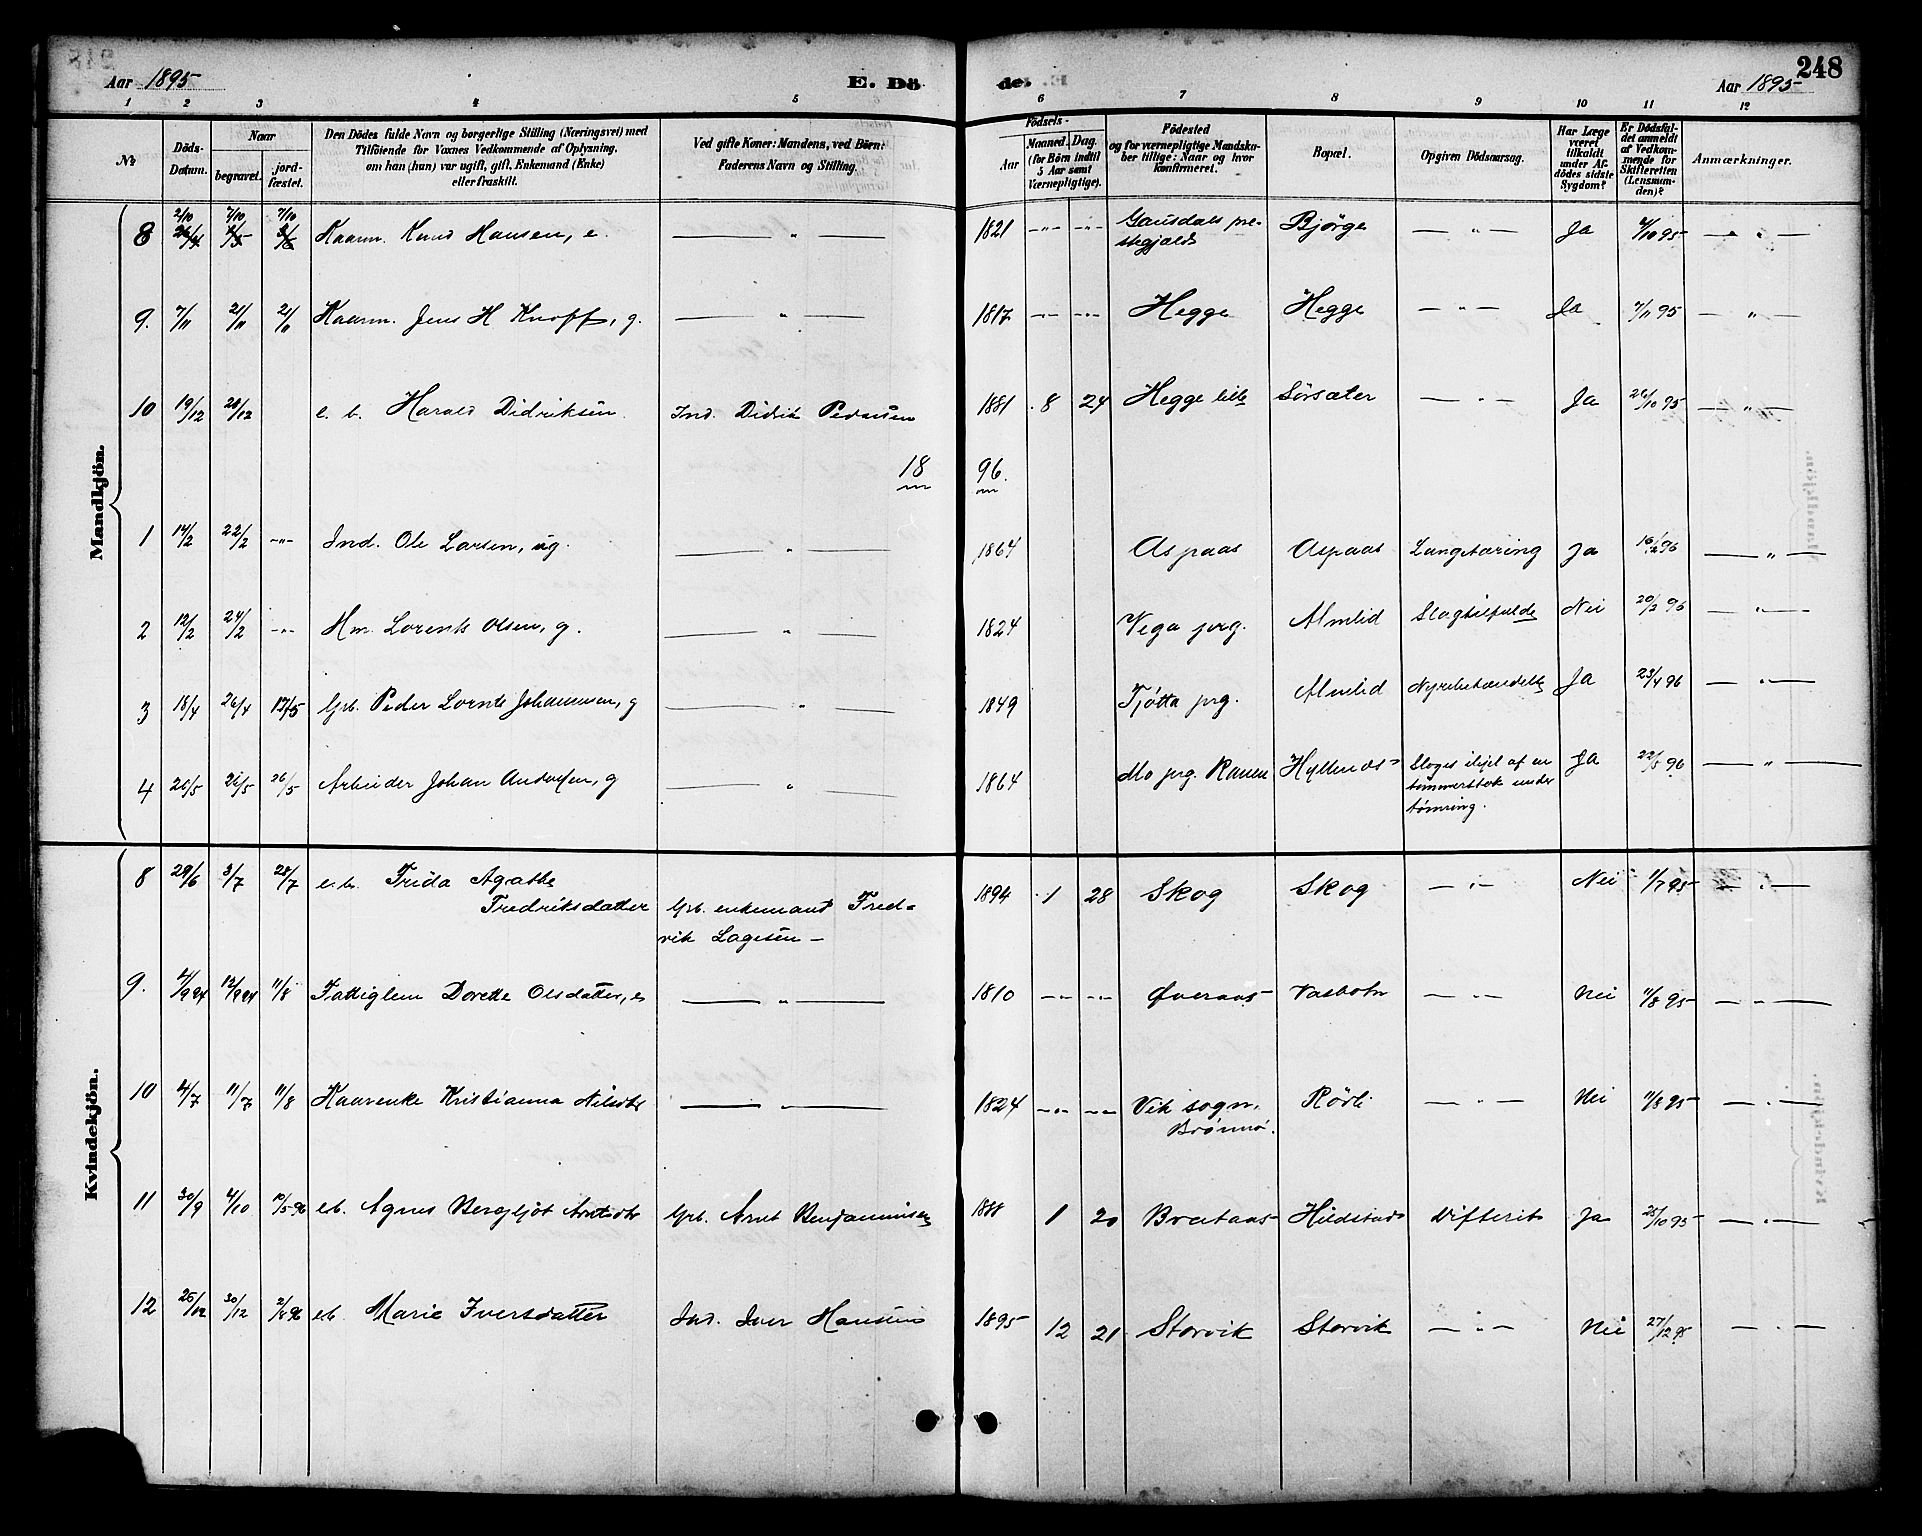 Aar 1895 E. Dö
de. Aar 1895 248
1 2 3 4 5 6 7 8 9 10 11 12
No
Döds-Datum.
Naar
begravet.
jord-fæstet.
Den Dödes fulde Navn og borgerlige Stilling (Næringsvei) med
Tilföiende for Voxnes Vedkommende af Oplysning,
om han (hun) var ugift, gift, Enkemand (Enke)
eller fraskilt.
Ved gifte Koner: Mandens, ved Börn:
Faderens Navn og Stilling.
Födsels-
Aar
Maaned. Dag.
(for Börn indtil
5 Aar samt
Værnepligtige).
Födested
og for værnepligtige Mandska-
ber tillige: Naar og hvor
konfirmeret.
Bopæl.
Opgiven Dödsaarsag.
Har Læge
været
tilkaldt
under Af-
dödes sidste
Sygdom?
Er Dödsfal-
det anmeldt
af Vedkom-
mende for
Skifteretten
(Lensman-
den)?
Anmærkninger.
Mandkjön.
8 2/10 7/10 7/10 Kaarm. Knud Hansen, e. — " — 1821 -"- -"- Gausdals pre-
stegjæld Bjørge — " — Ja 4/10 95 — " —
9. 7/11 21/11 21/11 Kaarm. Jens H Knoff, g. — " — 1817 -"- -"- Hegge Hegge — " — Ja 7/11 95 — " —
10 19/12 28/12 e. b. Harald Didriksen Ind. Didrik Pedersen 1881 8 24 Hegge lille Sörsæter — " — Ja 26/10 95 — " —
18 96.
1 14/2 22/2 -"- Ind. Ole Larsen, ug. — " — 1864 Aspaas Aspaas Lungetæring Ja 16/2 96 — " —
2 12/2 24/2 -"- Hm. Lorents Olsen, g. — " — 1824 Vega prg. Almlid Slagtilfælde Nei 20/2 96 — " —
3 18/4 26/4 17/5 Grb. Peder Lornts Johannesen, g — " — 1849 Tjøtta prg. Almlid Nyrebetændelse Ja 23/4 96 — " —
4 20/5 26/5 26/5 Arbeider Johan Andersen, g — " — 1864 Mo prg. Ranen Sloges ihjel af en
tømmerstok under
tømring. Ja 22/5 96 — " —
Kvindekjön.
8 29/6 3/7 28/7 e.b. Frida Agathe
Fredriksdatter Grb. enkemand Fred-
rik Lagesen — 1894 1 28 Skog Skog — " — Nei 1/7 95 — " —
9. 4/9 94 12/9 94 11/8 Fattiglem Dorette Olsdatter, e — " — 1810 -"- -"- Øveraas Vasbotn — " — Nei 11/8 95 — " —
10 4/7 11/7 11/8 Kaarenke Kristianna Nilsdtr — " — 1824 -"- -"- Vik sogn,
Brønnø. Rörli — " — Nei 11/8 95 — " —
11 30/9 4/10 10/5 96 e.b. Agnes Bergljot Arntsdtr Grb. Arnt Benjaminsen 1888 1 20 Brataas Hildstad Difterit Ja 25/10 95 — " —
12 25/12 30/12 2/8 96 e.b. Marie Iversdatter Ind. Iver Hansen 1895 12 21 Storvik Storvik — " — Nei 27/12 95 — " —